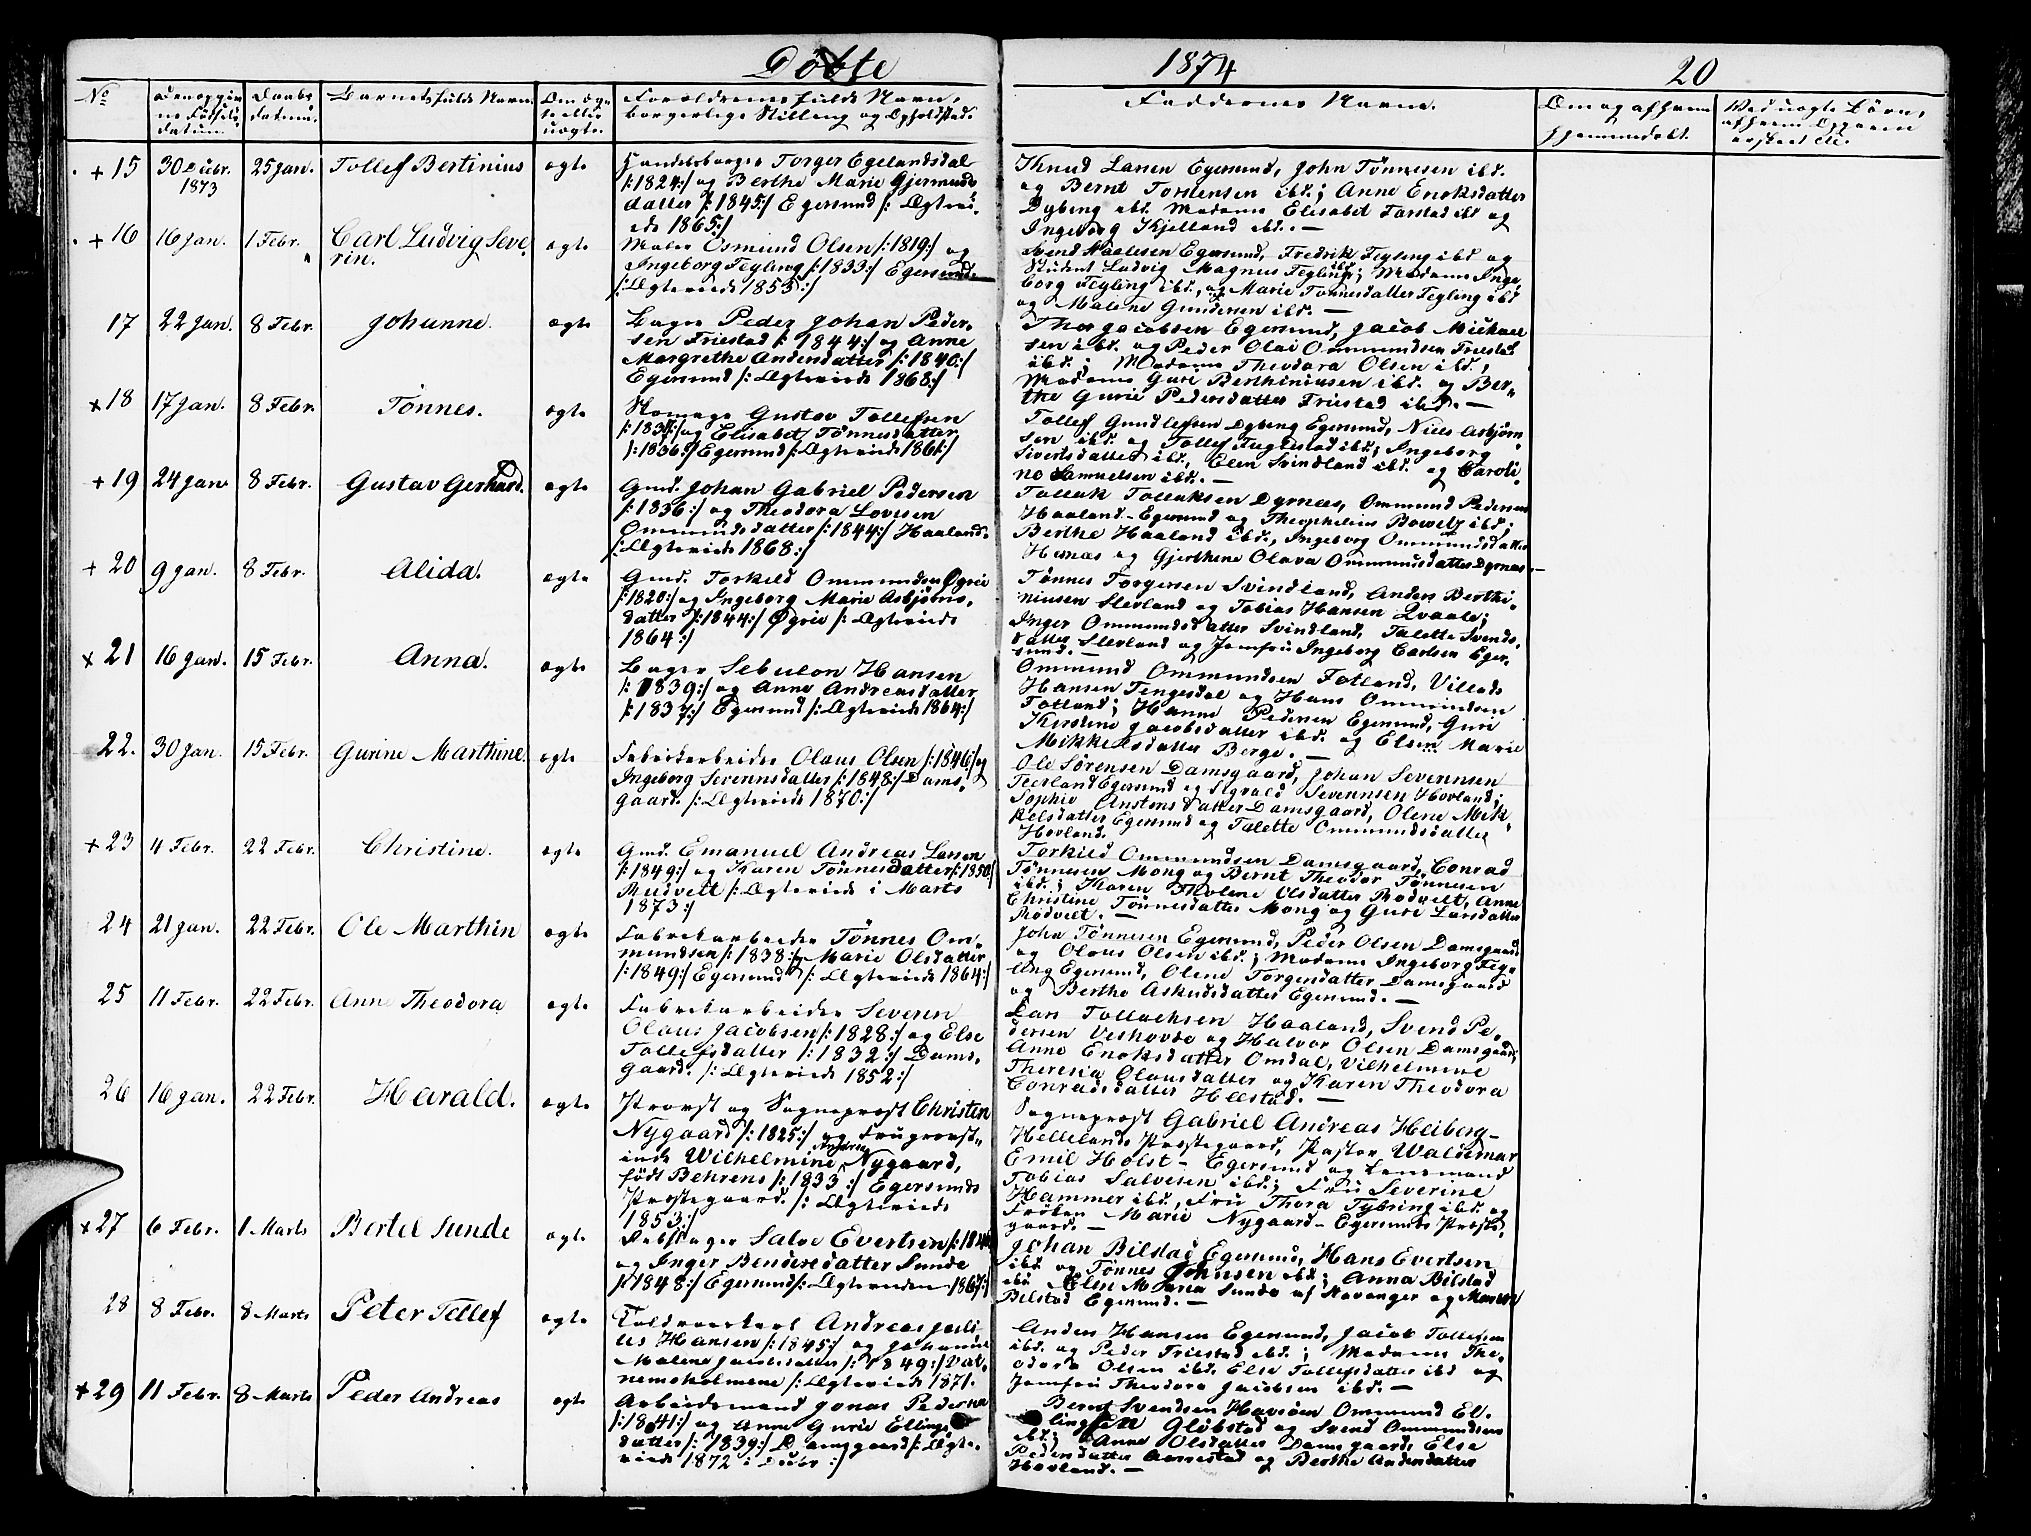 Döbte 1874 20
No
Barnets fulde Navn
Faddernes Navne.
+15 30 Decbr. 1873 25 Jan. Tollef Bertinius ægte
Handelsborger Torger Egelandsdal
/:1824:/ og Berthe Marie Gjermunds
datter /:1845:/ Egersund /: Ægtevi
ede 1865:/
Knud Larsen Egersund, John Tönnesen ibd.
og Bernt Torstensen ibd.; Anne Enoksdatter
Dyбing ibd. Madame Elisabet Tarstad ibd og
Ingeborg Kjelland ibd. —
+16 16 Jan. 1 Febr. Carl Ludvig Seve
rin. ægte
Maler Osmund Olsen /:1819:/ og
Ingeborg Tegling /:1833:/ Egersund.
/:Ægteviede 1853:/
Svend Saalesen Egersund, Fredrik Fegling ibd og
Student Ludvig Magnus Fegling ibd; Madame Inge
borg Fegling ibd., og Marie Tönnesdatter Fegling ibd
og Malene Gundersen ibd. —
17 22 Jan. 8 Febr. Johanne. ægte
Bager Peder Johan Peder
sen Friestad /:1844:/ og Anne
Margrethe Andersdatter /:1840:/
Egersund /: Ægteviede 1868:/
Thor Jacobsen Egersund, Jacob Mickael
sen ibd. og Peder Olai Ommundsen Friestad
ibd.; Madame Theodora Olsen ibd.,
Madame Guri Berthiniusen ibd. og Ber
the Gurie Pedersdatter Friestad ibd. —
+18 17 Jan. 8 Febr. Tönnes. ægte
Skomager Gustav Tollefsen
/:1837:/ og Elisabet Tönnesdatter
/:1836:/ Egersund /: Ægteviede 1861:/
Tollef Gundlefsen Dybing Egersund, Niels Asbjörn
sen ibd. og Tollef Fuglestad ibd.; Ingeborg
Sivertsdatter ibd., Elen Svindland ibd. og Caroli
ne Samuelsen ibd. —
+19 24 Jan 8 Febr. Gustav Gerhard. ægte
Gmd. Johan Gabriel Pedersen
/:1836:/ og Theodora Lovisen
Ommundsdatter /:1844:/ Haaland.
/:Ægteviede 1868:/
Tollak Tollaksen Dyrnes, Ommund Pedersen
Haaland - Egersund og Theophilius Bowitz ibd;
Berthe Haaland ibd., Ingeborg Ommundsdatter
Hernæs og Gjerthine Olava Ommundsdatter Dyrnæs. —
+20 9 Jan. 8 Febr. Alida. ægte
Gmd. Torkild Ommundsen Ögrei
/:1820:/ og Ingeborg Marie Asbjörns
datter /:1844:/ Ögrei /: Ægteviede
1864:/
Tönnes Torgersen Svindland, Anders Berthi
niusen Slevland og Tobias Hansen Qvaale;
Inger Ommundsdatter Svindland, Talette Svends
datter Slevland og Jomfru Ingeborg Carlsen Eger
sund. —
+21 16 Jan. 15 Febr. Anna. ægte
Bager Sebulon Hansen
/:1839:/ og Anne Andreasdatter
/:1837:/ Egersund /: Ægteviede 1864:/
Ommund Ommundsen Fotland, Villads
Hansen Tengesdal og Hans Ommundsen
Fotland; Hanne Pedersen Egersund, Guri
Kirstine Jacobsdatter ibd. og Elsen Marie
Mikkelsdatter Berge. —
22. 30 Jan. 15 Febr. Gurine Marthine. ægte
Fabrikarbeider Olaus Olsen /:1846:/ og
Ingeborg Severinsdatter /:1848:/ Dams
gaard. /: Ægteviede 1870:/
Ole Sörensen Damsgaard, Johan Severinsen
Teerland Egersund og Sigvald Severinsen Hovland;
Sophie Anstensdatter Damsgaard, Olene Mik
kelsdatter Egersund og Talette Ommundsdatter
Hovland.
+23 4 Febr. 22 Febr. Christine. ægte
Gmd. Emanuel Andreas Larsen
/:1849:/ og Karen Tönnesdatter /:1850:/
Rudvelt /: Ægteviede i Marts
1873:/
Torkild Ommundsen Damsgaard, Conrad
Tönnesen Mong og Bernt Theodor Tönnesen
ibd.; Karen Tholene Olsdatter Rodvelt, Anne
Christine Tönnesdatter Mong og Guri Larsdatter
Rodvelt. —
24 21 Jan. 22 Febr. Ole Marthin ægte
Fabrikarbeider Tönnes Om
mundsen /:1838:/ Marie Olsdatter
/:1849:/ Egersund /: Ægteviede 1864:/
John Tönnesen Egersund, Peder Olsen Damsgaard
og Olaus Olsen ibd.; Madame Ingeborg Feg
ling Egersund, Olene Torgersdatter Damsgaard
og Berthe Askildsdatter Egersund. —
25 11 Febr. 22 Febr. Anne Theodora ægte
Fabrikarbeider Severin
Olaus Jacobsen /:1828:/ og Else
Tollefsdatter /:1832:/ Dams
gaard. /: Ægteviede 1852:/
Lars Tollachsen Haaland, Svend Pe
dersen Veshovde og Halvor Olsen Damsgaard;
Anne Enoksdatter Omdal, Vilhelmine
Theresia Olausdatter og Karen Theodora
Conradsdatter Hellstad. —
26 16 Jan. 22 Febr. Harald. ægte
Provst og Sognepræst Christen
Nygaard /:1825:/ og Fru provst
inde Wilhelmine Nygaard,
födt Behrens /:1833:/ Egersunds
Præstegaard. /: Ægteviede
1853:/
Sognepræst Gabriel Andreas Heiberg -
Hellelands Præstegaard, Pastor Waldemar
Emil Holst - Egersund og Lensmand
Tobias Salvesen ibd.; Fru Severine
Hammer ibd., Fru Thora Tybring ibd. og
Fröken Marie Nygaard - Egersunds Præste
gaard. —
+27 6 Febr. 1 Marts Bertel Sunde ægte
Salve Evertsen
og Inger Bendixsdatter Sunde
/:1848:/ Egersund /: Ægteviede 1867:/
Johan Bilstad Egersund, Hans Evertsen
ibd. og Tönnes Johnsen ibd.; Anna Bilstad
ibd Elen Maria Sunde af Stavanger og Maren
Bilstad Egersund. —
28 8 Febr. 8 Marts Peter Tollef ægte
Toldopsynsmand Andreas
Hansen /:1845:/ og Johanne
Malene Jacobsdatter /:1849:/ Vat
nemsholmene /: Ægteviede 1871.
Anders Hansen Egersund, Jacob Tollefsen
ibd. og Peder Friestad ibd.; Madame The
odora Olsen ibd. Else Tollefsdatter ibd og
Jomfru Theodora Jacobsen ibd. —
+29 11 Febr. 8 Marts Peder Andreas ægte
Arbeidsmand Jonas Pedersen
/:1841:/ og Anne Gurie Ellings
datter /:1839:/ Damsgaard /: Ægte
viede 1872 i Decbr:/
Bernt Svendsen Havsöen Ommund El
lingsen Glöbstad og Svend Ommundsen
ibd.; Anne Olsdatter Damsgaard, Else
Pedersdatter Aarrestad og Berthe Andersdatter
Hovland. —